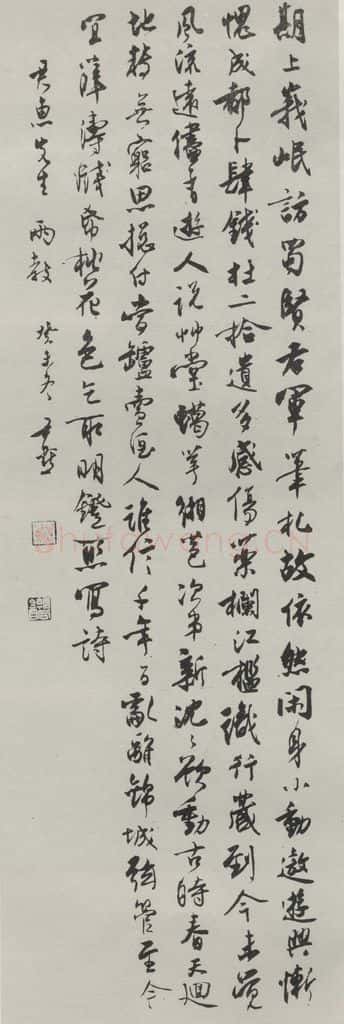 期上峩岷訪蜀賢右軍筆札故依然閑身小動遨遊興慚
愧成都卜肆錢杜二拾遺多感傷藥欄江檻識行藏到今未覺
風流遠儘有遊人說艸堂蠟萼緗苞次第新沈沈欲動古時春天迴
地轉無窮思揔付當罏賣酒人誰信千年有亂離錦城絃管至今
宜薛濤牋帋桃花色乞取明鐙照寫詩
君惠先生兩教 癸未冬 尹默
shufawang.CN